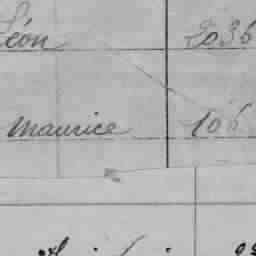 Léon 2036
Maurice 106